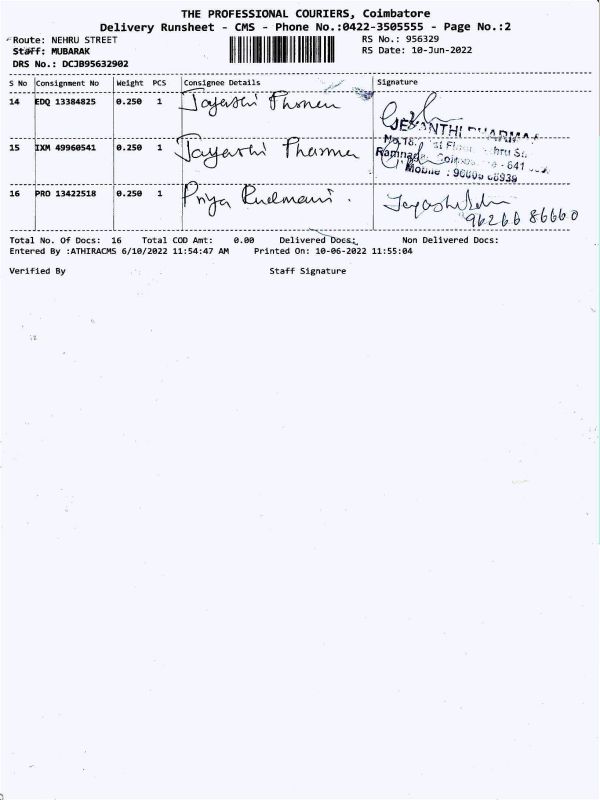 THE PROFESSIONAL COURIERS, Coimbatore
Delivery Runsheet - CMS - Phone No.:0422-3505555 - Page No.:2
Route: NEHRU STREET
RS No.: 956329
Staff: MUBARAK
RS Date: 10-Jun-2022
DRS No.: DCJB95632902
S No Consignment No Weight PCS Consignee Details Signature
14 EDQ 13384825 0.250 1
JEYANTHI PHARMA
15 IXM 49960541 0.250 1 Jayashi Pharma
No.18, 1st Floor, Nehru St.
Ramnagar, Coimbatore - 641
Mobile :
16 PRO 13422518 0.250 1 Priya
96266 86660
Total No. Of Docs: 16 Total COD Amt: 0.00 Delivered Docs: Non Delivered Docs:
Entered By :ATHIRACMS 6/10/2022 11:54:47 AM Printed On: 10-06-2022 11:55:04
Verified By Staff Signature